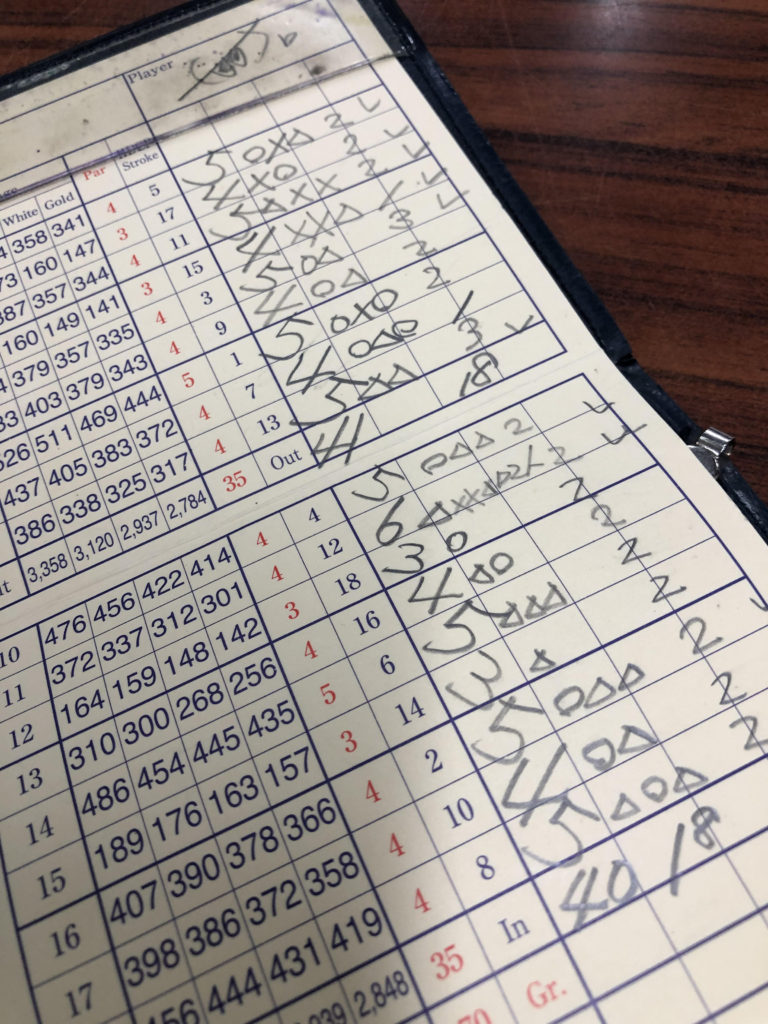 Player
White Gold Par Stroke
358 341 4 5 5 OX△ 2 ✓
160 147 3 17 4 XO 2 ✓
387 357 344 4 11 5 △XX 2 ✓
160 149 141 3 15 4 XX△ 1 ✓
379 357 335 4 3 5 O△ 3 ✓
403 379 343 4 9 4 O△ 2
526 511 469 444 5 1 5 OXO 2
437 405 383 372 4 7 4 O△O 1
386 338 325 317 4 13 5 X△△ 3 ✓
3,358 3,120 2,937 2,784 35 Out 41 18
10 476 456 422 414 4 4 5 O△△ 2 ✓
11 372 337 312 301 4 12 6 2 ✓
12 164 159 148 142 3 18 3 O 2
13 310 300 268 256 4 16 4 △O 2
14 486 454 445 435 5 6 5 △△△ 2
15 189 176 163 157 3 14 3 △ 2 ✓
16 407 390 378 366 4 2 5 O△△ 2
17 398 386 372 358 4 10 4 O△ 2
444 431 419 4 8 5 △O△ 2
2,848 35 In 40 18
70 Gr.